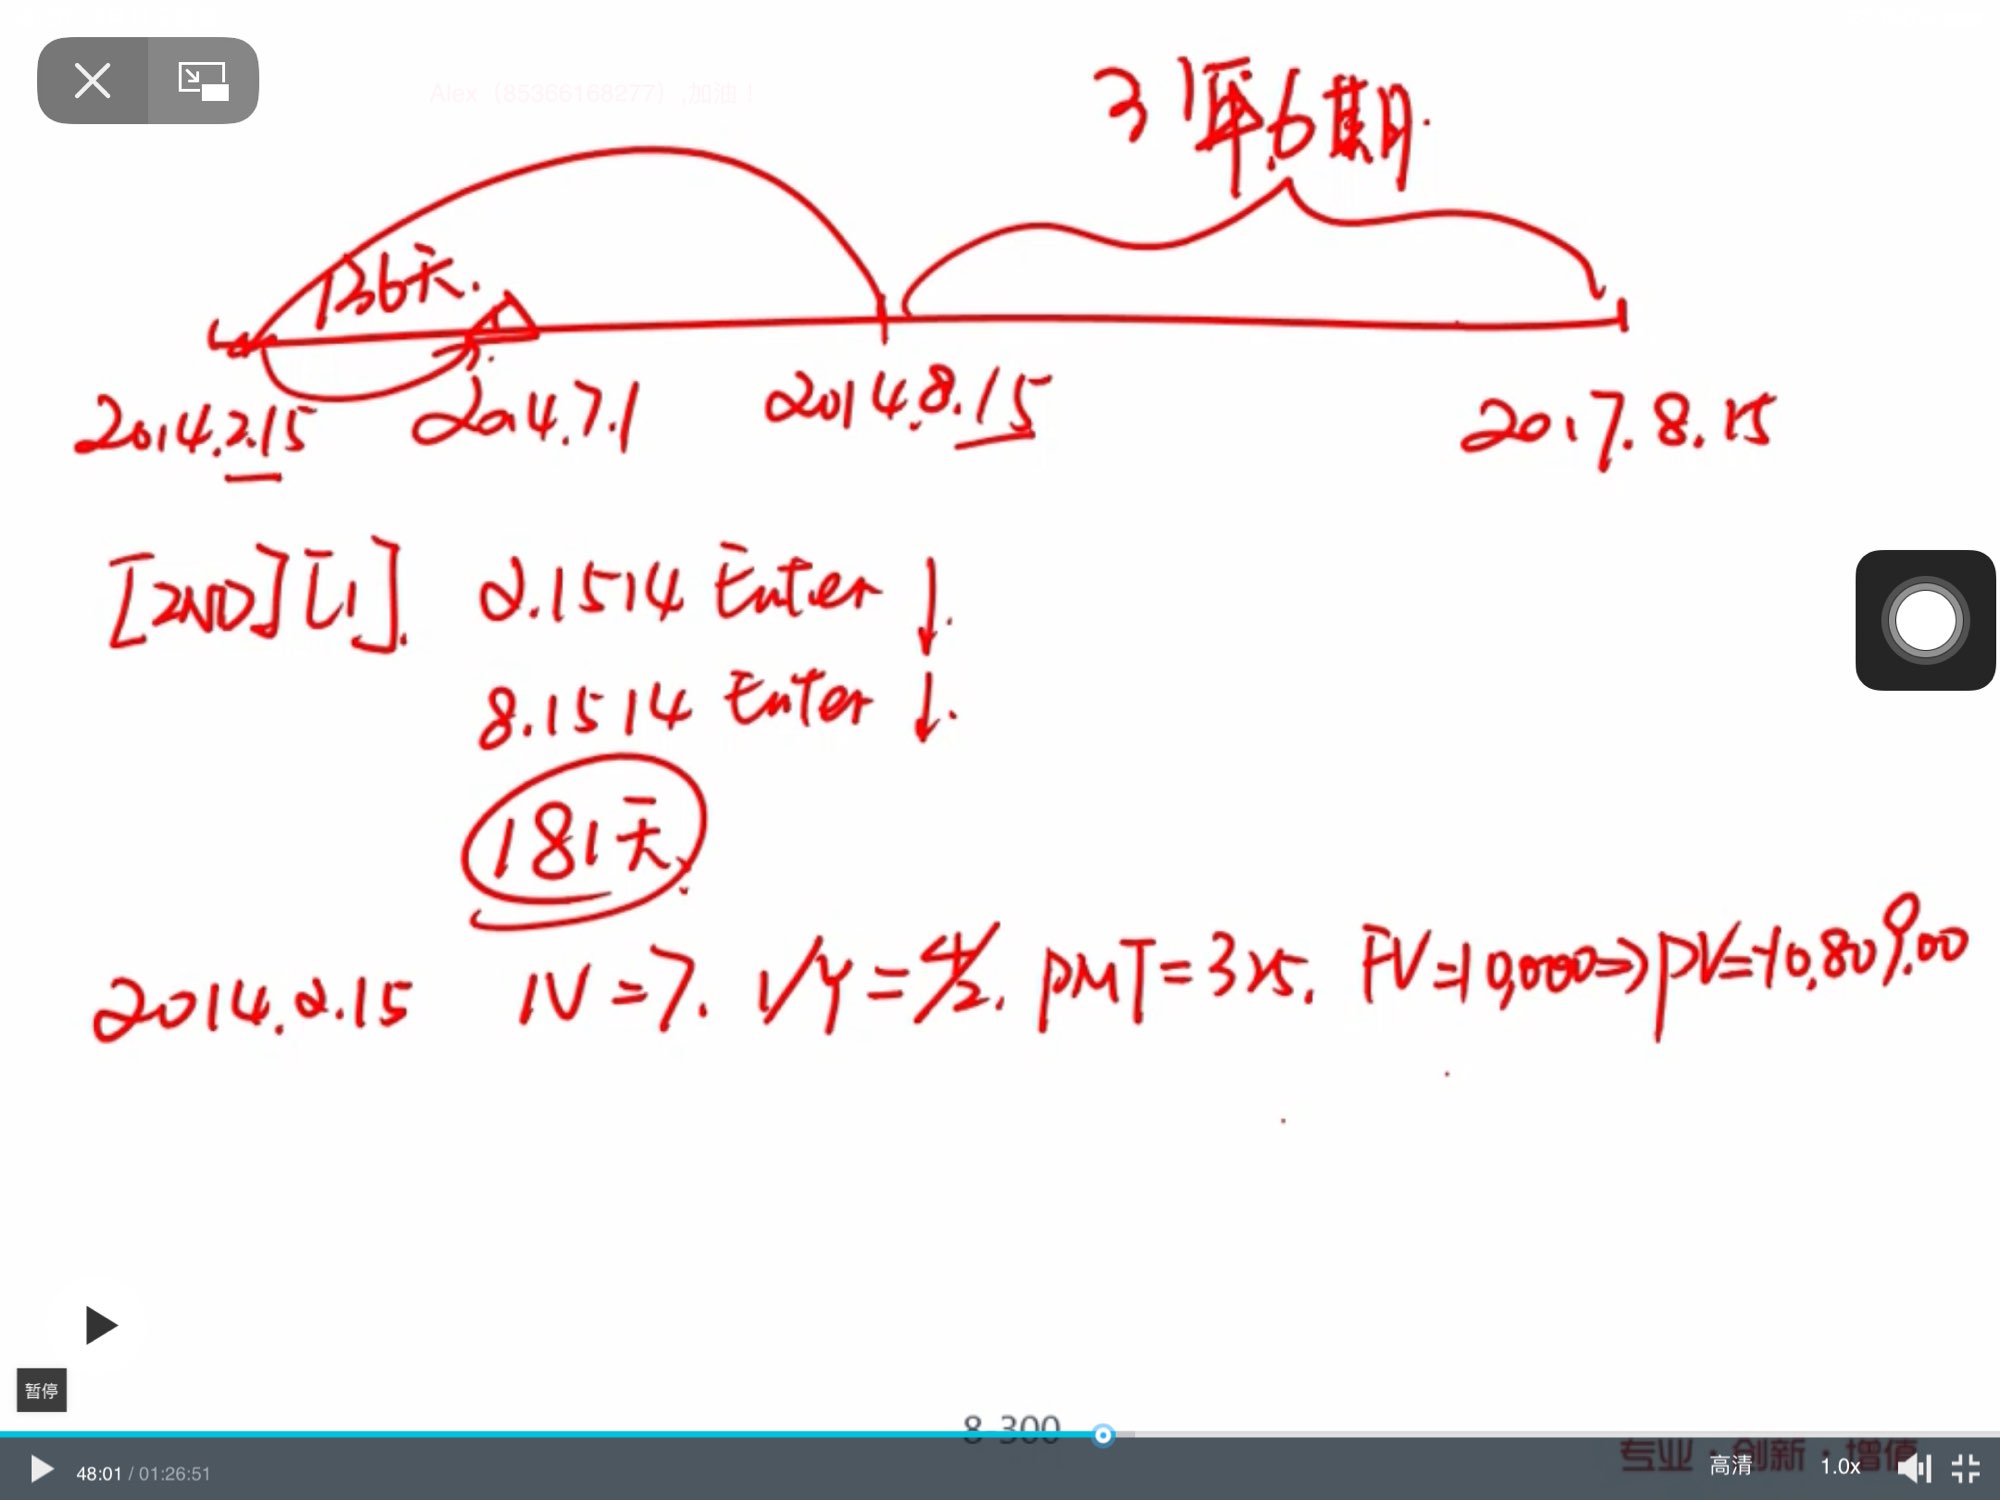 Alex（85366168277）,加油！
3年.6期.
136天.
2014.2.15 2014.7.1 2014.8.15 2017.8.15
[2ND][1]. 2.1514 Enter ↓.
8.1514 Enter ↓.
181天.
2014.2.15 N=7. I/Y=4/2. PMT=325. FV=10,000⇒PV=-10,809.00
暂停
8-300
专业·创新·增值
48:01 / 01:26:51 高清 1.0x